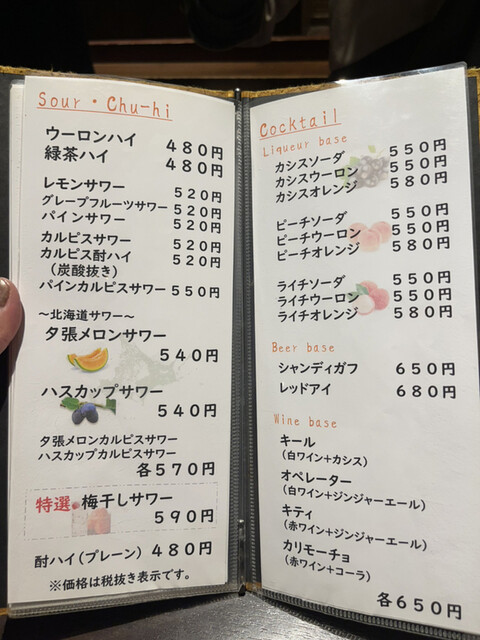 Sour・Chu-hi
ウーロンハイ 480円
緑茶ハイ 480円
レモンサワー 520円
グレープフルーツサワー 520円
パインサワー 520円
カルピスサワー 520円
カルピス酎ハイ 520円
(炭酸抜き)
パインカルピスサワー 550円
～北海道サワー～
夕張メロンサワー
540円
ハスカップサワー
540円
夕張メロンカルピスサワー
ハスカップカルピスサワー
各570円
特選 梅干しサワー
590円
酎ハイ(プレーン) 480円
※価格は税抜き表示です。
Cocktail
Liqueur base
カシスソーダ 550円
カシスウーロン 550円
カシスオレンジ 580円
ピーチソーダ 550円
ピーチウーロン 550円
ピーチオレンジ 580円
ライチソーダ 550円
ライチウーロン 550円
ライチオレンジ 580円
Beer base
シャンディガフ 650円
レッドアイ 680円
Wine base
キール
(白ワイン+カシス)
オペレーター
(白ワイン+ジンジャーエール)
キティ
(赤ワイン+ジンジャーエール)
カリモーチョ
(赤ワイン+コーラ)
各650円